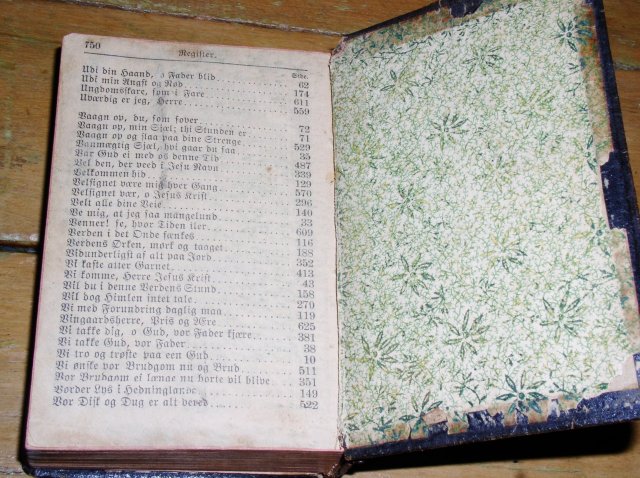 750
Register.
Side.
Udi din Haand, o Fader blid 62
Udi min Angst og Nød 174
Ungdomsskare, som i Fare 611
Uværdig er jeg, Herre 559
Vaagn op, du, som sover 72
Vaagn op, min Sjæl; thi Stunden er 71
Vaagn op og slaa paa dine Strenge 529
Vanmægtig Sjæl, hvi gaar du saa 35
Var Gud ei med os denne Tid 487
Vel den, der veed i Jesu Navn 339
Velkommen hid 129
Velsignet være mig hver Gang 570
Velsignet vær, o Jesus Krist 296
Velt alle dine Veie 140
Ve mig, at jeg saa mangelund 33
Venner! se, hvor Tiden iler 609
Verden i det Onde sænkes 116
Verdens Ørken, mørk og taaget 188
Vidunderligst af alt paa Jord 352
Vi kaste atter Garnet 413
Vi komme, Herre Jesus Krist 43
Vil du i denne Verdens Stund 158
Vil dog Himlen intet tale 270
Vi med Forundring daglig maa 119
Vingaardsherre, Pris og Ære 625
Vi takke dig, o Gud, vor Fader kjære 381
Vi takke Gud, vor Fader 38
Vi tro og trøste paa een Gud 10
Vi ønske vor Brudgom nu og Brud 511
Vor ei længe nu borte vil blive 351
Vorder Lys i Hedninglande 149
Vor Disk og Dug er alt bered 522